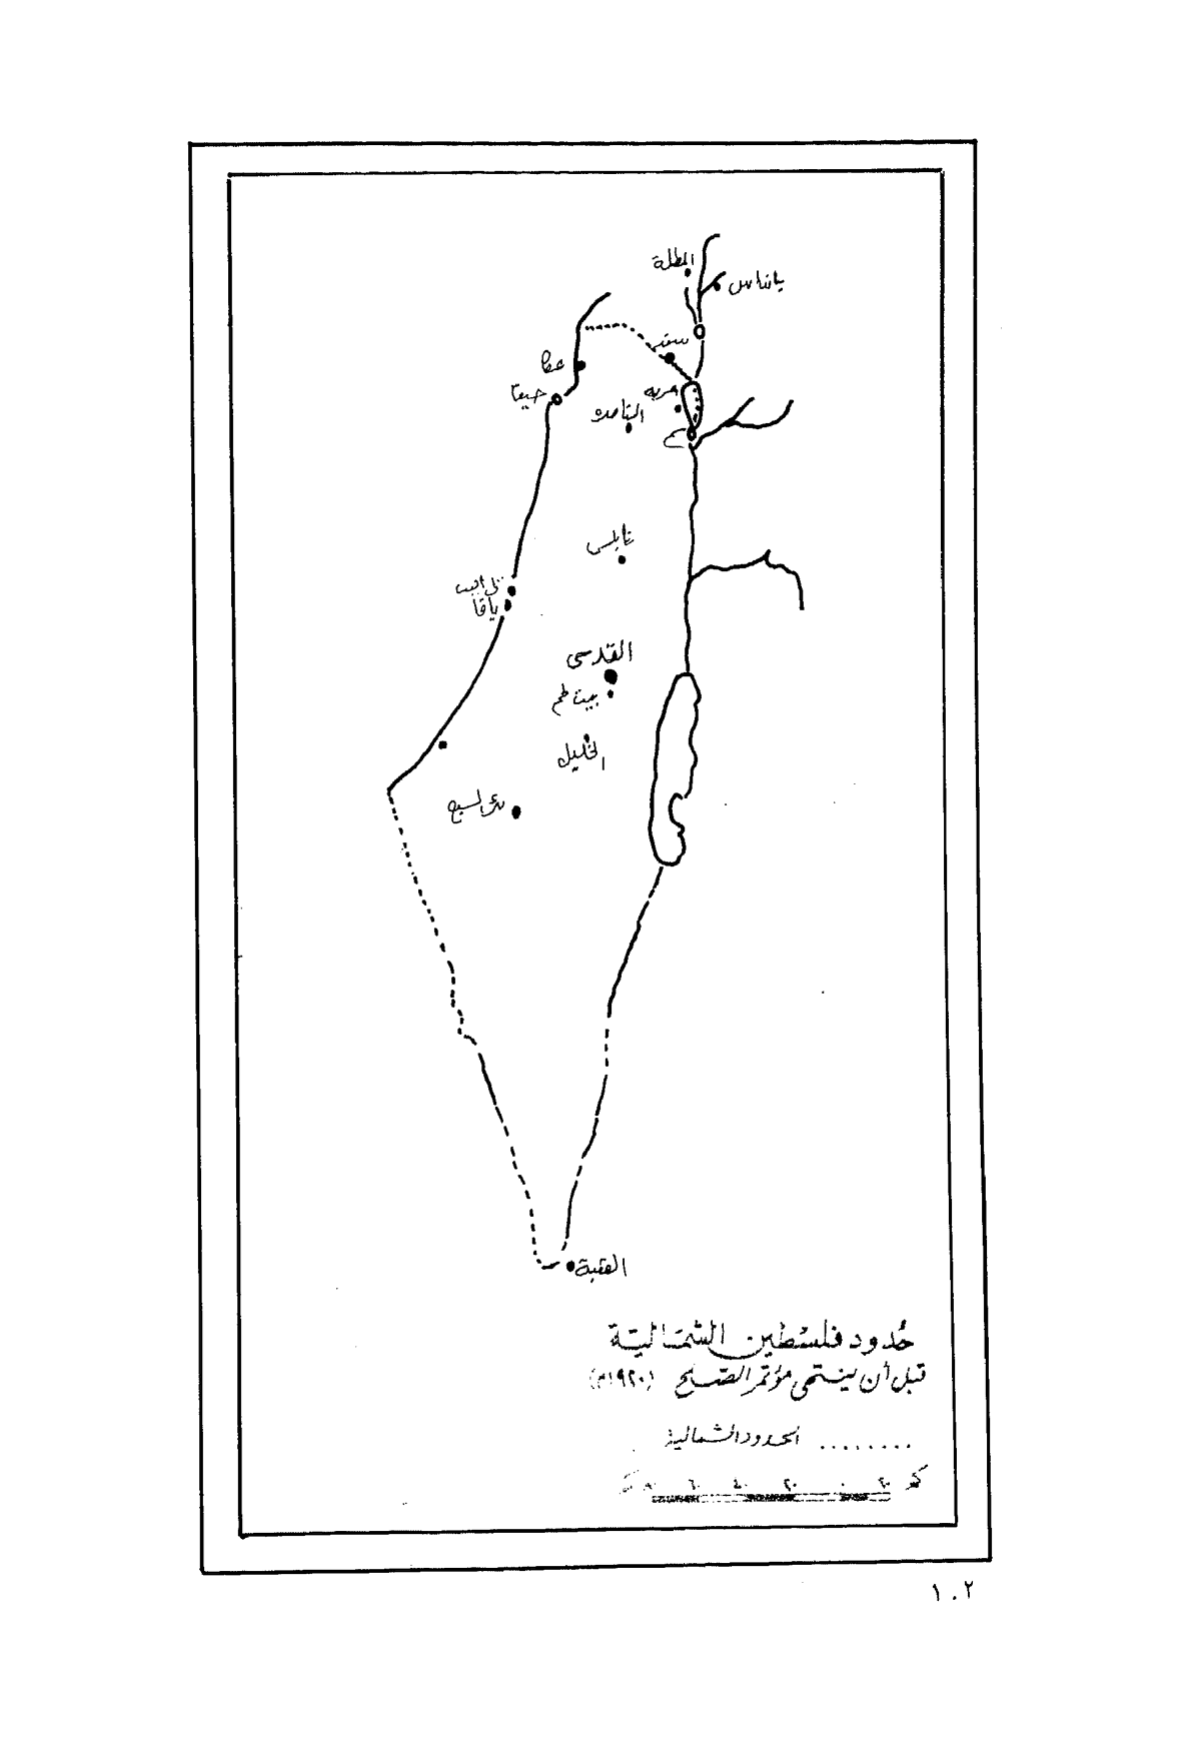 المطلة
بانياس
صفد
عكا
حيفا
طبريه
الناصره
سمخ
نابلس
تل ابيب
يافا
القدس
بيت لحم
الخليل
بئر السبع
العقبة
حُدود فلسطين الشمالية
قبل أن ينتهي مؤتمر الصلح (١٩٢٠م)
........ الحدود الشمالية
٨٠ ٦٠ ٤٠ ٢٠ ٠ ٢٠ كم
١٠٢